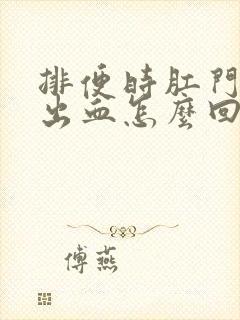 排便時肛門
出血怎麼回
傅燕